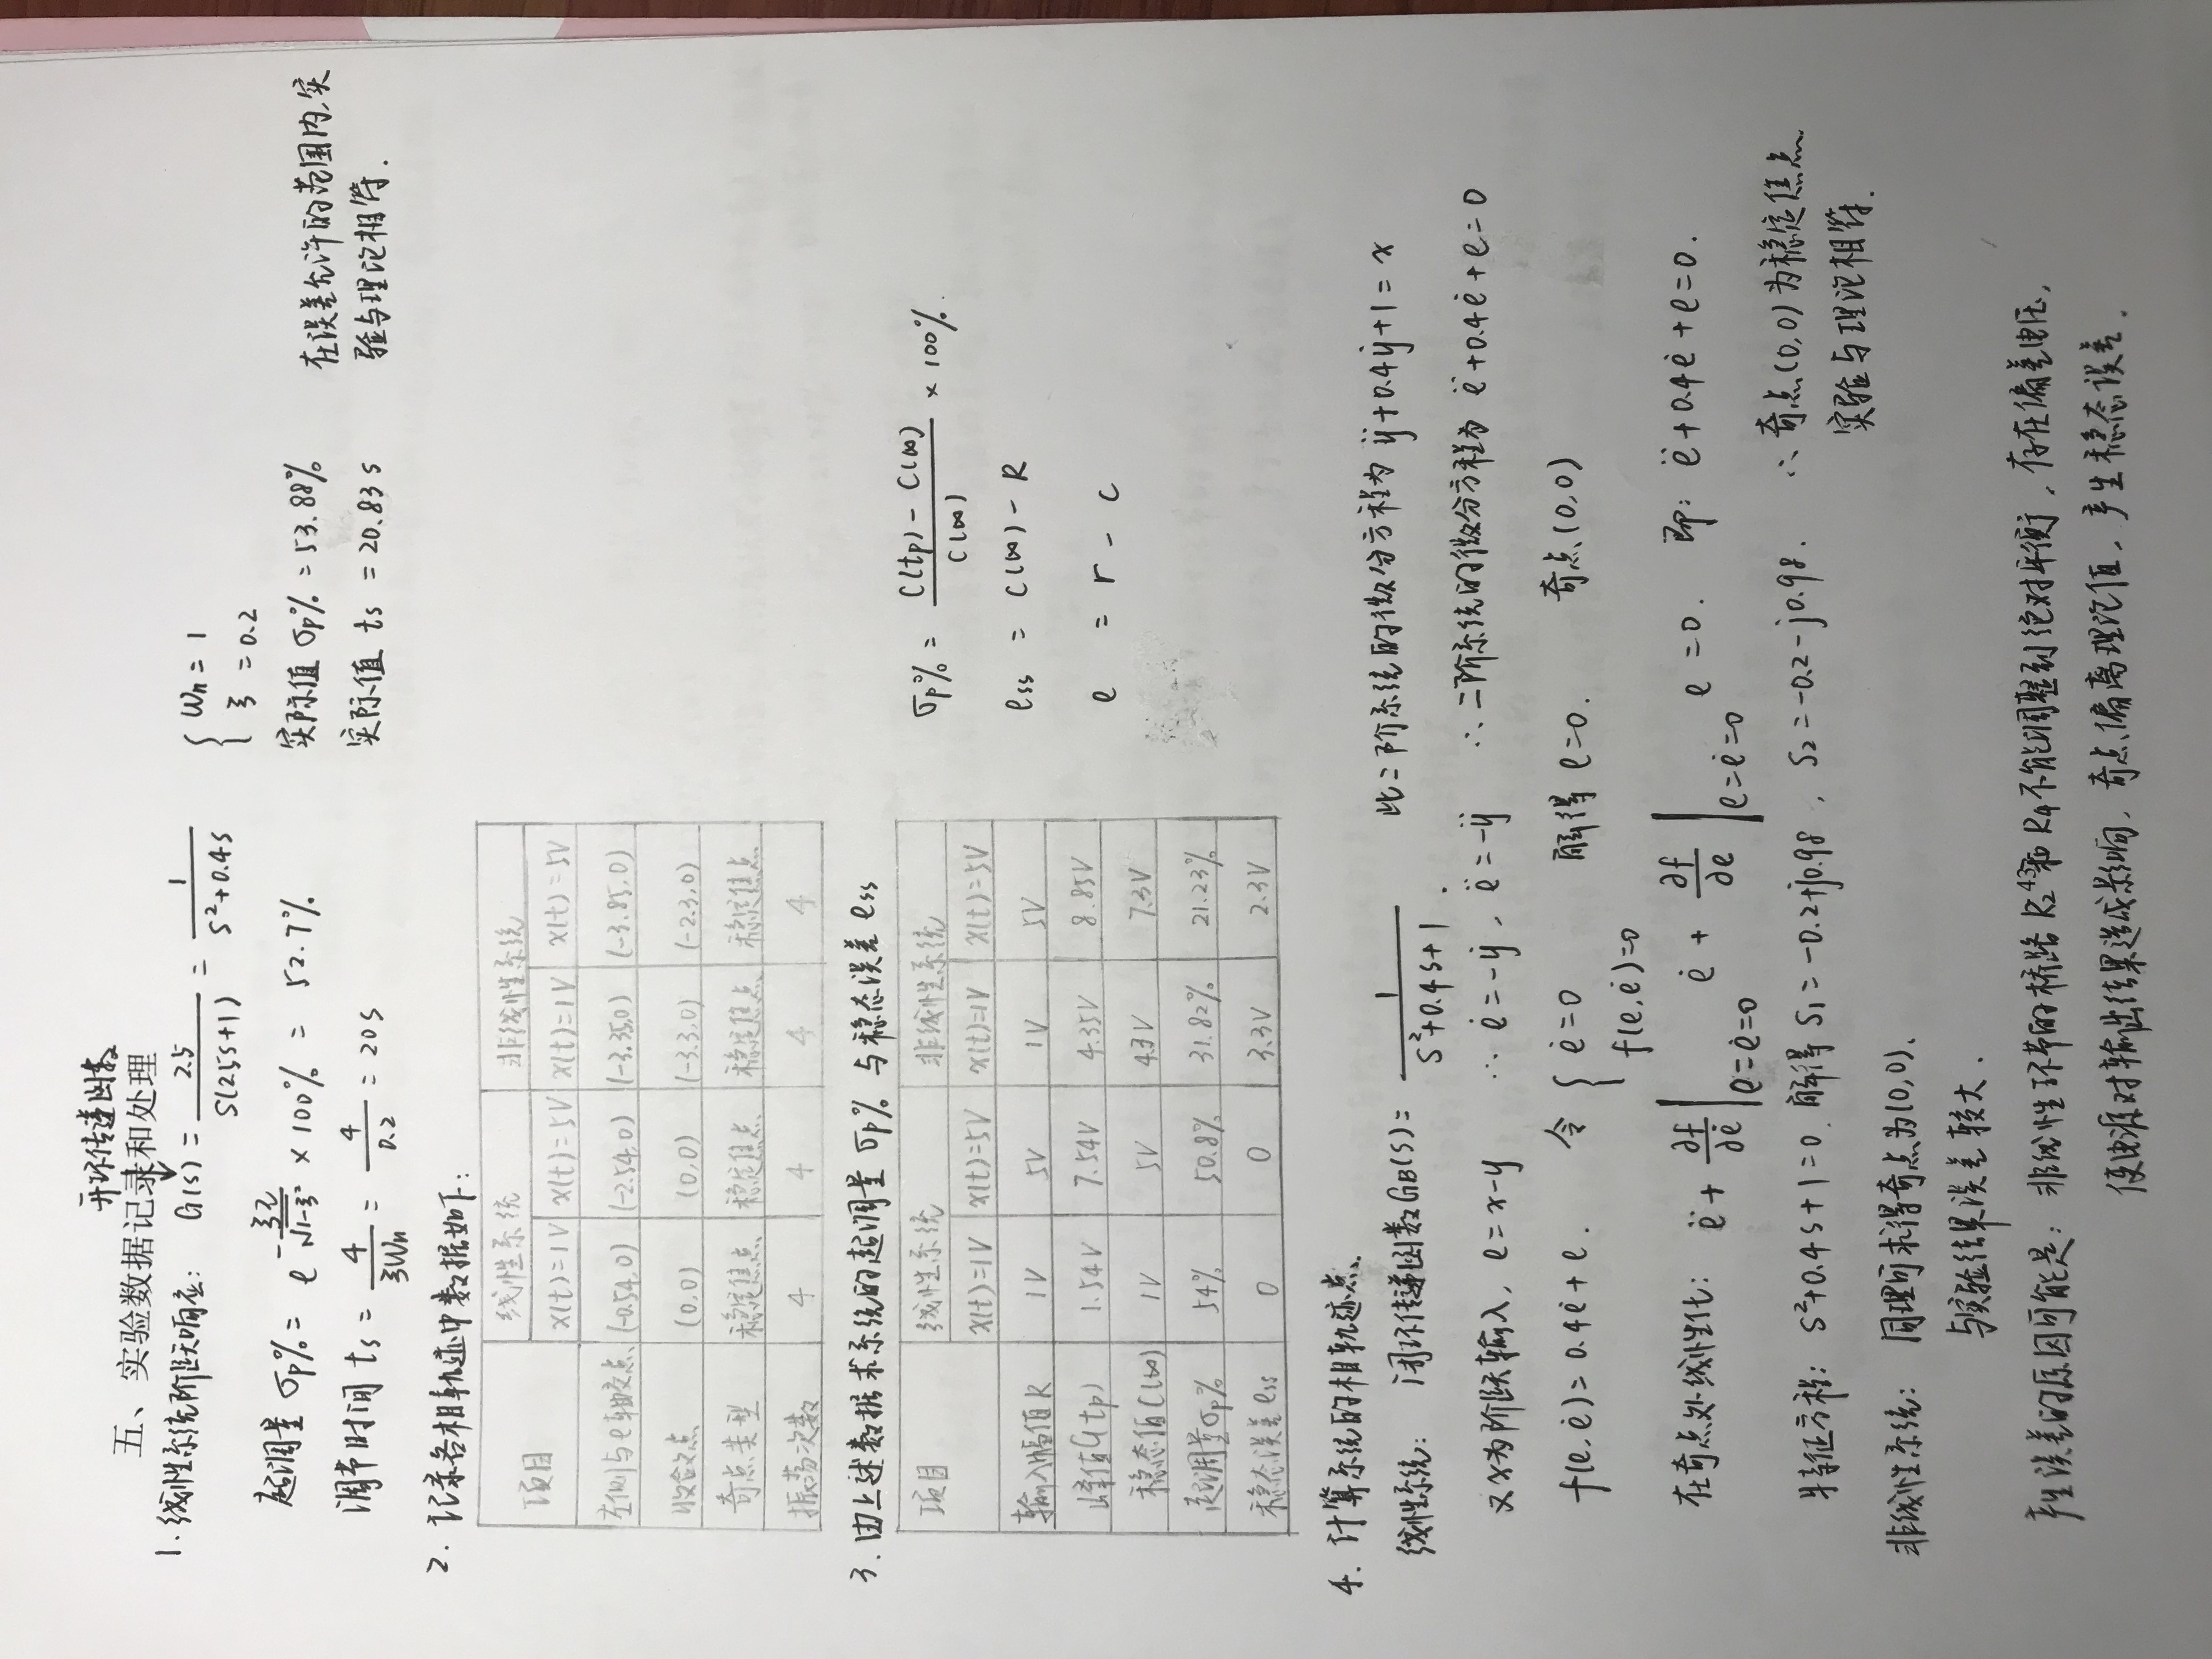 开环传递函数
五、实验数据记录和处理
1. 线性系统阶跃响应: G(s) = 2.5 / S(2.5s+1) = 1 / S²+0.4s { Wn = 1
ξ = 0.2
超调量 σp% = e^(-ξπ/√1-ξ²) × 100% = 52.7% 实际值 σp% = 53.88% 在误差允许的范围内,实
调节时间 ts = 4/ξWn = 4/0.2 = 20s 实际值 ts = 20.83s 验与理论相符.
2. 记录各相轨迹中数据如下:
项目 线性系统 非线性系统
x(t)=1V x(t)=5V x(t)=1V x(t)=5V
左侧与e轴交点 (-0.54,0) (-2.54,0) (-3.35,0) (-3.85,0)
收敛点 (0,0) (0,0) (-3.3,0) (-2.3,0)
奇点类型 稳定焦点 稳定焦点 稳定焦点 稳定焦点
振荡次数 4 4 4 4
3. 由上述数据求系统的超调量 σp% 与稳态误差 ess
项目 线性系统 非线性系统
x(t)=1V x(t)=5V x(t)=1V x(t)=5V
输入幅值R 1V 5V 1V 5V
峰值C(tp) 1.54V 7.54V 4.35V 8.85V
稳态值C(∞) 1V 5V 4.3V 7.3V
超调量σp% 54% 50.8% 31.82% 21.23%
稳态误差ess 0 0 3.3V 2.3V
σp% = C(tp) - C(∞) / C(∞) × 100%.
ess = C(∞) - R
e = r - c
4. 计算系统的相轨迹点.
线性系统: 闭环传递函数GB(S) = 1 / S²+0.4s+1 . 此二阶系统的微分方程为 ÿ+0.4ẏ+1=x
又x为阶跃输入, e=x-y ∴ ė=-ẏ, ë=-ÿ ∴ 二阶系统的微分方程为 ë+0.4ė+e=0
f(e,ė)=0.4ė+e. 令 { ė=0 解得 e=0. 奇点(0,0)
f(e,ė)=0
在奇点处线性化: ë + ∂f/∂ė |e=ė=0 ė + ∂f/∂e |e=ė=0 e =0. 即: ë+0.4ė+e=0.
特征方程: S²+0.4s+1=0. 解得 S1=-0.2+j0.98, S2=-0.2-j0.98. ∴ 奇点(0,0)为稳定焦点.
实验与理论相符.
非线性系统: 同理可求得奇点为(0,0).
与实验结果误差较大.
产生误差的原因可能是: 非线性环节的桥路 R2 43和 R4不能调整到绝对平衡, 存在偏差电压,
使电源对输出结果造成影响, 奇点偏离理论值, 产生稳态误差.